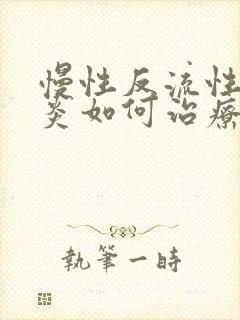 慢性反流性
炎如何治療
執筆一時